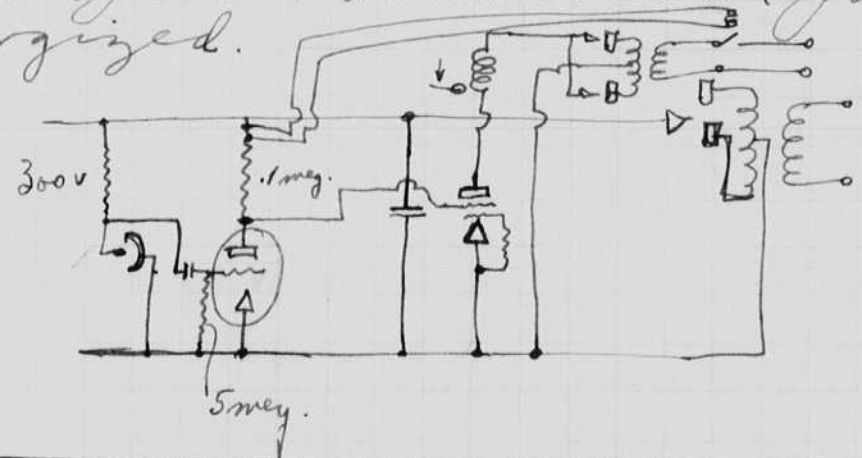 rgized.
300 v
.1 meg.
5 meg.